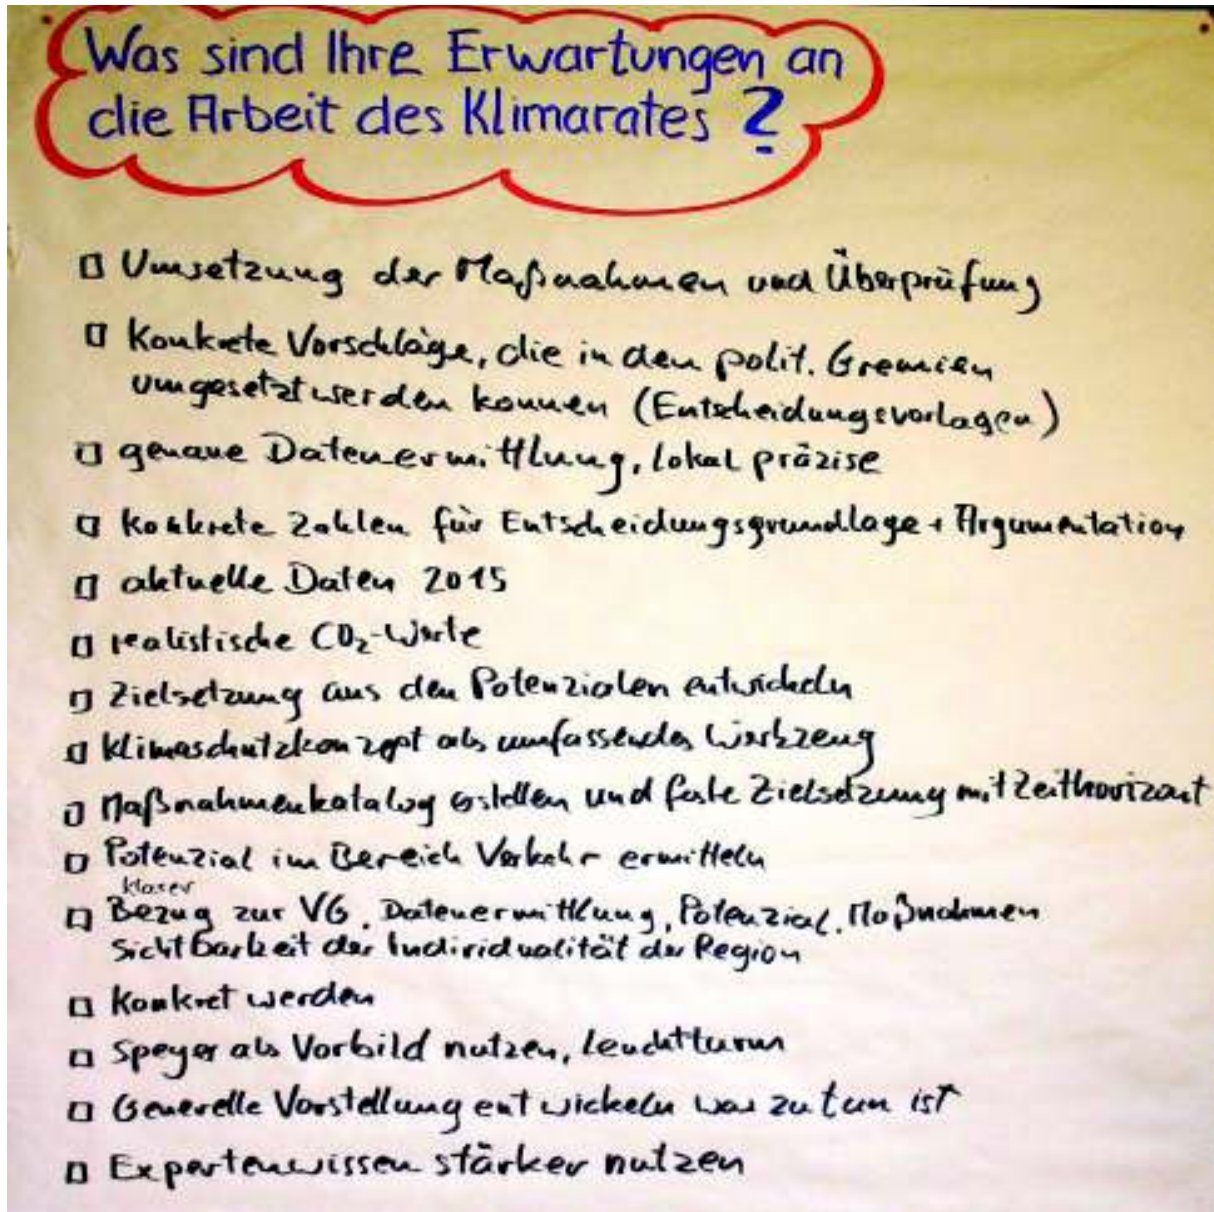 Was sind Ihre Erwartungen an
die Arbeit des Klimarates ?
Umsetzung der Maßnahmen und Überprüfung
Konkrete Vorschläge, die in den polit. Gremien
umgesetzt werden können (Entscheidungsvorlagen)
genaue Datenermittlung, lokal präzise
Konkrete Zahlen für Entscheidungsgrundlage + Argumentation
aktuelle Daten 2015
realistische CO₂-Werte
Zielsetzung aus den Potenzialen entwickeln
Klimaschutzkonzept als umfassendes Werkzeug
Maßnahmenkatalog erstellen und feste Zielsetzung mit Zeithorizont
Potenzial im Bereich Verkehr ermitteln
klarer
Bezug zur VG, Datenermittlung, Potenzial, Maßnahmen
Sichtbarkeit der Individualität der Region
Konkret werden
Speyer als Vorbild nutzen, Leuchtturm
Generelle Vorstellung entwickeln was zu tun ist
Expertenwissen stärker nutzen